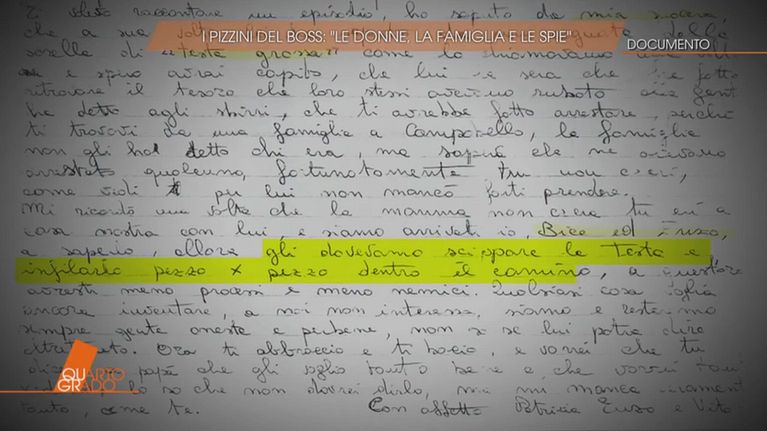 I PIZZINI DEL BOSS: "LE DONNE, LA FAMIGLIA E LE SPIE"
DOCUMENTO
raccontare un episodio, ho saputo da mia suocera,
che a sua
sorella di "testa grossa" come lo chiamavamo
e spiro avrai capito, che lui e sera che
ritrovare il tesoro che loro stessi avevano rubato
ha detto agli sbirri, che ti avrebbe fatto arrestare, perché
ti trovavi da una famiglia a Campobello, la famiglia
non gli ha detto chi era, ma sapeva che ne avevano
arrestato qualcuno, fortunatamente tu non c'eri,
come vedi per lui non mancò farti prendere.
Mi ricordo una volta che la mamma non c'era tu eri a
casa nostra con lui, e siamo arrivati io, Bice ed Enzo,
a saperlo, allora gli dovevamo scippare la testa e
infilarlo pezzo x pezzo dentro il camino, a quest'ora
avresti meno processi e meno nemici. Qualsiasi cosa voglia
ancora inventare, a noi non interessa, siamo e resteremo
sempre gente onesta e perbene, non so se lui potrà dire
altrettanto. Ora ti abbraccio e ti bacio, e vorrei che tu
papà che gli voglio tanto bene e che vorrei
lo so che non dovrei dirlo, ma mi manca veramente
tanto, come te. Con affetto Patrizia Enzo e Vito
QUARTO
GRADO